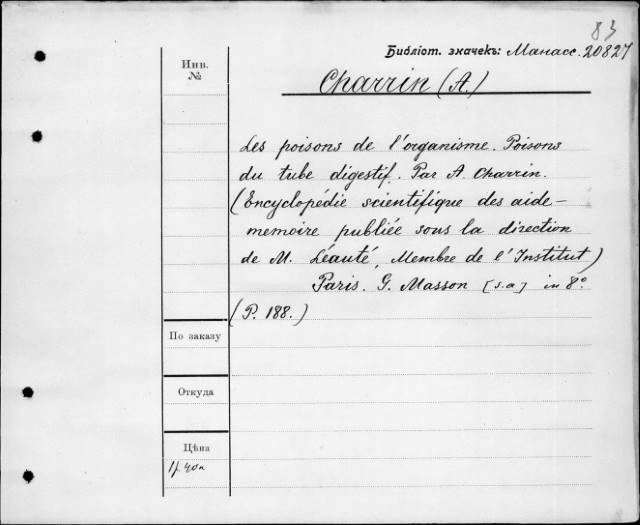 83
Библіот. значекъ: Манасс. 20827
Инв.
№
Charrin (A.)
Les poisons de l'organisme. Poisons
du tube digestif. Par A. Charrin.
(Encyclopédie scientifique des aide-
memoire publiée sous la direction
de M. Léauté, Membre de l'Institut)
Paris. G. Masson [s.a] in 8º.
(P. 188.)
По заказу
Откуда
Цѣна